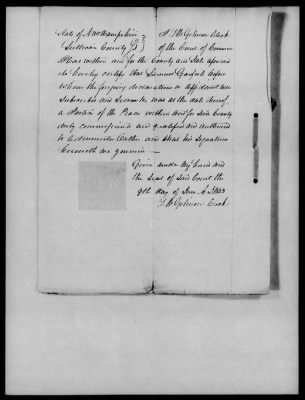 State of Newhampshire } I J H Clerk
Sullivan County Ss } of the Court of Common
Pleas within and for the County and State aforesaid
do hereby certify that Samuel Garfield before
whom the foregoing declaration & affidavit are
Subscribed and Sworn to was at the date thereof
a Justice of the Peace within and for said County
duly commissioned and qualified and authorised
to administer Oaths and that his Signature
herewith are genuine
Given under my hand and
the Seal of Said Court the
9th day of A D 1853
Clerk